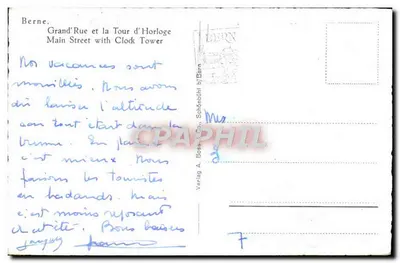 Berne.
Grand'Rue et la Tour d'Horloge
Main Street with Clock Tower
BERN
Nos vacances sont
mouillées. Nous avons
dû laisser l'altitude
car tout était dans la
brume. En
c'est mieux. Nous
faisons les touristes
en badauds. Mais
c'est moins reposant
cet été. Bons baisers
Mes
7
Verlag A. Boss & Co., Schönbühl b/Bern
DELCAMPE